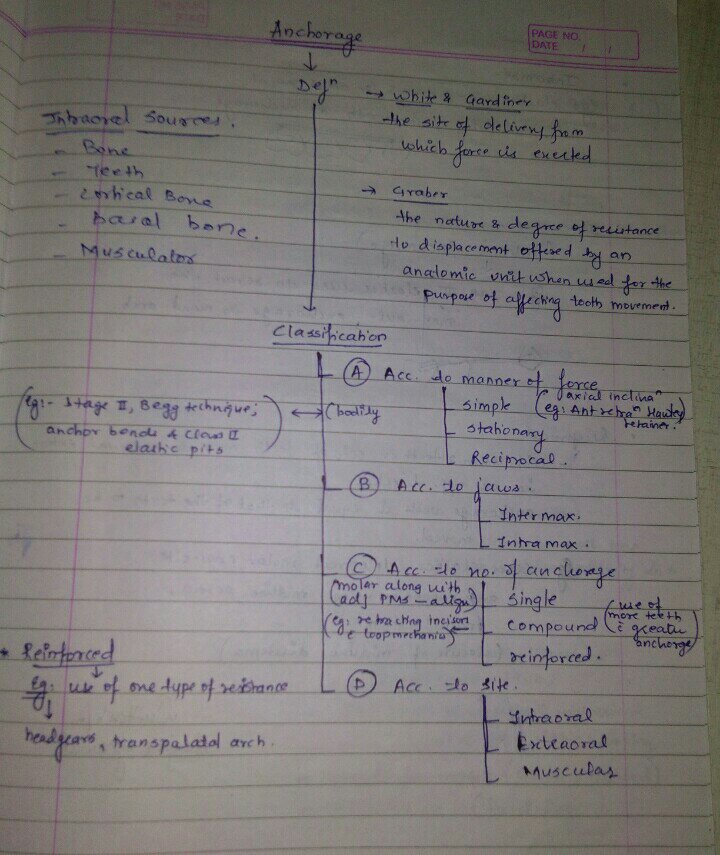 PAGE NO.
DATE / /
Anchorage
Defⁿ
→ White & Gardiner
the site of delivery from
which force is exerted
Intraoral Sources.
- Bone
- Teeth
- Cortical Bone
- basal bone.
- Musculator
→ Graber
the nature & degree of resistance
to displacement offered by an
anatomic unit when used for the
purpose of affecting tooth movement.
Classification
(A) Acc. to manner of force
simple (axial inclinaⁿ
eg: Ant retraⁿ Hawley
retainer.)
stationary
Reciprocal.
(bodily
(Eg:- Stage II, Begg technique;
anchor bends & Class II
elastic pits)
(B) Acc. to jaws.
Intermax.
Intramax.
(C) Acc. to no. of anchorage
single
(molar along with
adj PMs - align)
compound (use of
more teeth
c̄ greater
anchorge)
(eg: retracting incisors
c̄ loop mechanics)
reinforced.
* Reinforced
Eg: use of one type of resistance
headgears, transpalatal arch.
(D) Acc. to site.
Intraoral
Extraoral
Muscular